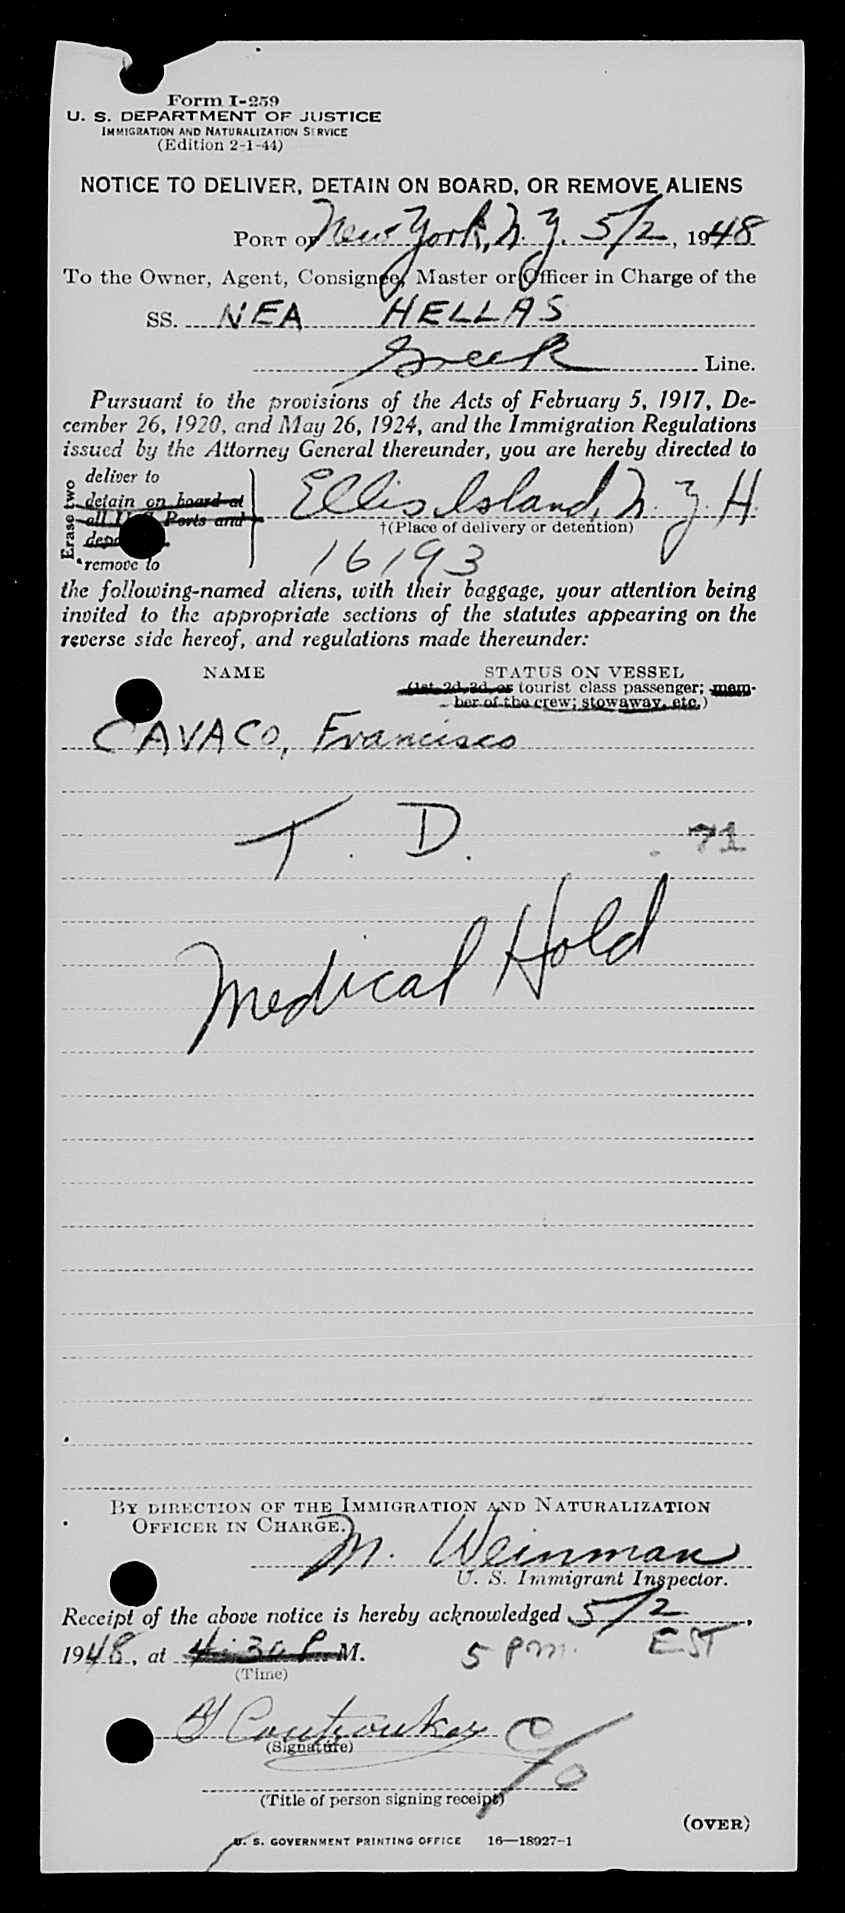 Form I-259
U. S. DEPARTMENT OF JUSTICE
IMMIGRATION AND NATURALIZATION SERVICE
(Edition 2-1-44)
NOTICE TO DELIVER, DETAIN ON BOARD, OR REMOVE ALIENS
PORT OF New York, N. Y. 5/2, 1948
To the Owner, Agent, Consignee, Master or Officer in Charge of the
SS. NEA HELLAS
Greek Line.
Pursuant to the provisions of the Acts of February 5, 1917, De-
cember 26, 1920, and May 26, 1924, and the Immigration Regulations
issued by the Attorney General thereunder, you are hereby directed to
Erase two
deliver to
detain on board at
all U. S. Ports and
*remove to
Ellis Island, N. Y. H.
†(Place of delivery or detention)
16193
the following-named aliens, with their baggage, your attention being
invited to the appropriate sections of the statutes appearing on the
reverse side hereof, and regulations made thereunder:
NAME STATUS ON VESSEL
(1st, 2d, 3d, or tourist class passenger; mem-
ber of the crew; stowaway, etc.)
CAVACO, Francisco
T. D. 71
Medical Hold
BY DIRECTION OF THE IMMIGRATION AND NATURALIZATION
OFFICER IN CHARGE.
M. Weinman
U. S. Immigrant Inspector.
Receipt of the above notice is hereby acknowledged 5/2,
1948, at 4:30 P M. 5 pm. EST
(Time)
C/O
(Signature)
(Title of person signing receipt)
(OVER)
U. S. GOVERNMENT PRINTING OFFICE 16—18927-1